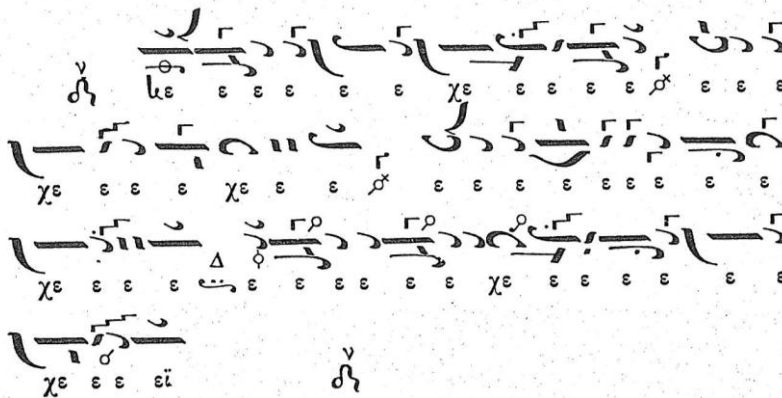 ν κε ε ε ε ε ε χε ε ε ε ε ε ε ε
χε ε ε ε χε ε ε ε ε ε ε ε ε ε ε ε
χε ε ε ε Δ ε ε ε ε ε χε ε ε ε ε ε
χε ε ε εϊ ν